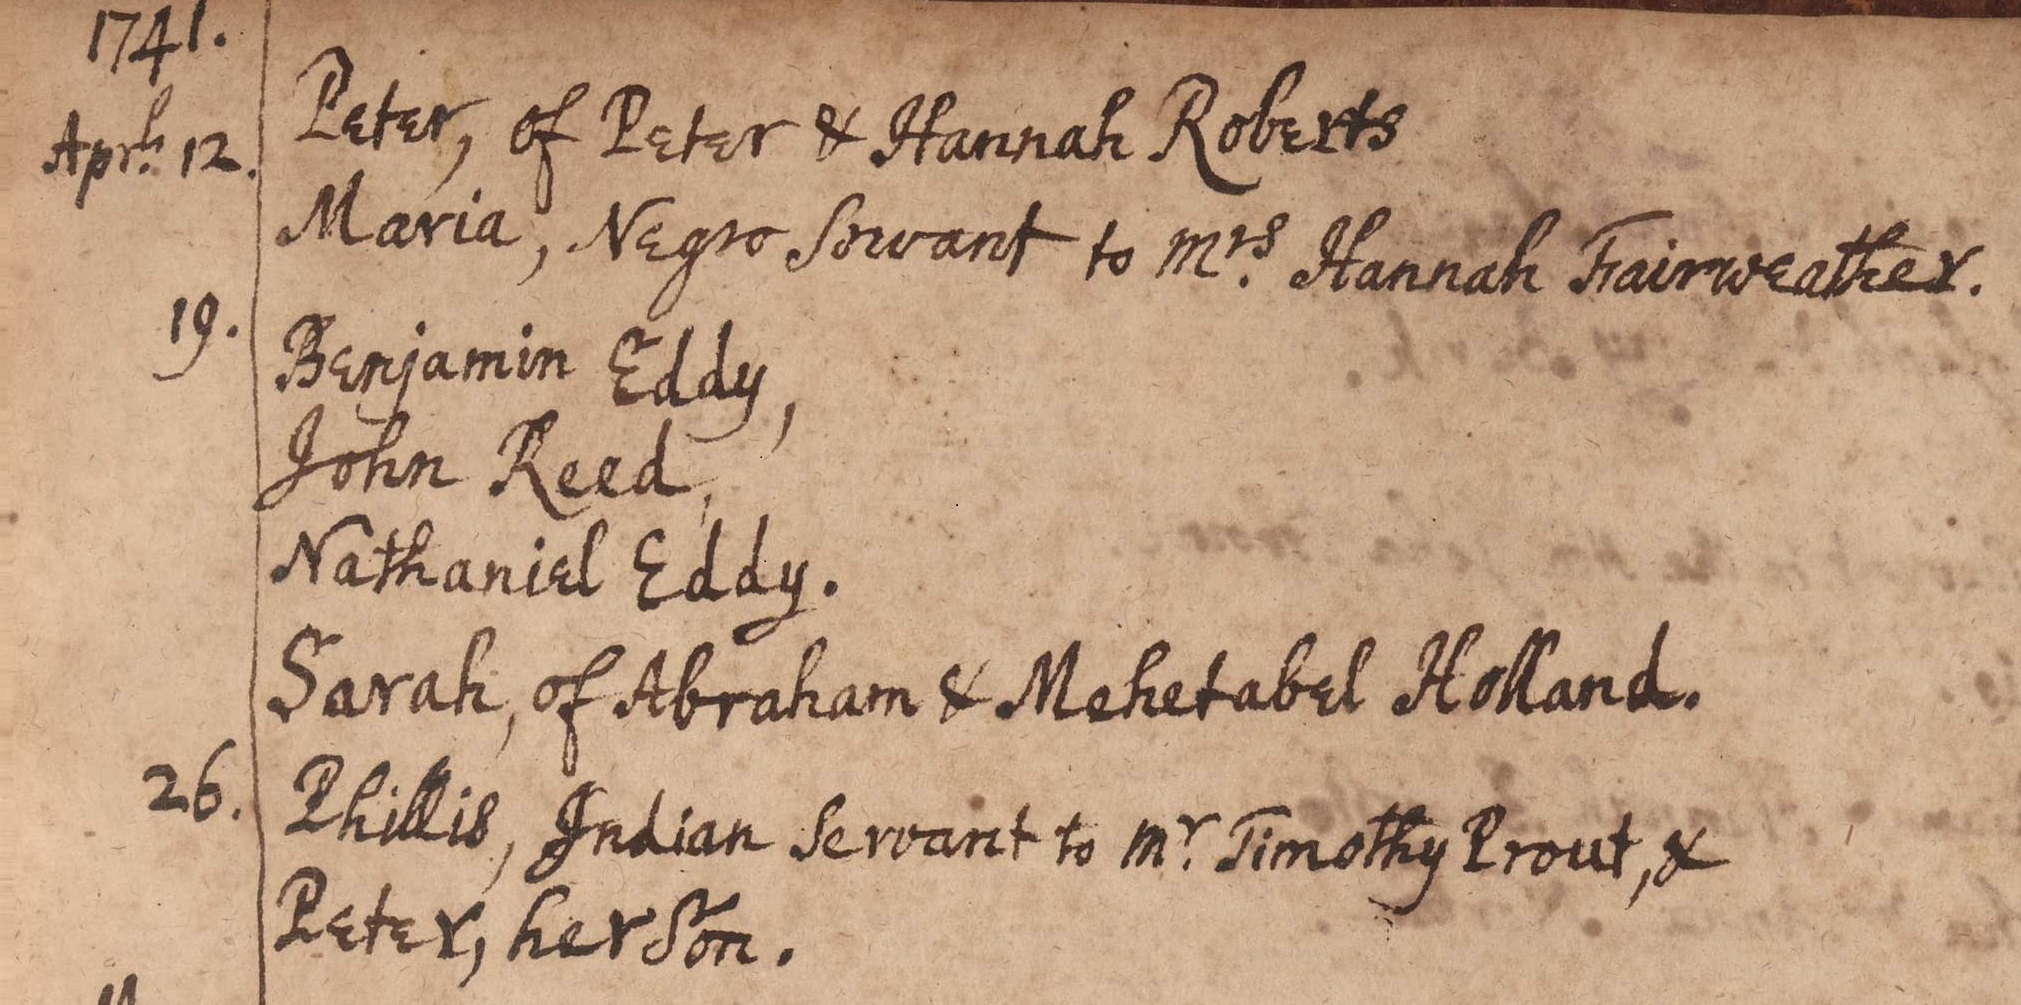 1741.
Aprl. 12. Peter, of Peter & Hannah Roberts
Maria, Negro Servant to Mrs. Hannah Fairweather.
19. Benjamin Eddy,
John Reed,
Nathaniel Eddy.
Sarah, of Abraham & Mehetabel Holland.
26. Phillis, Indian Servant to Mr. Timothy Prout, &
Peter, her Son.